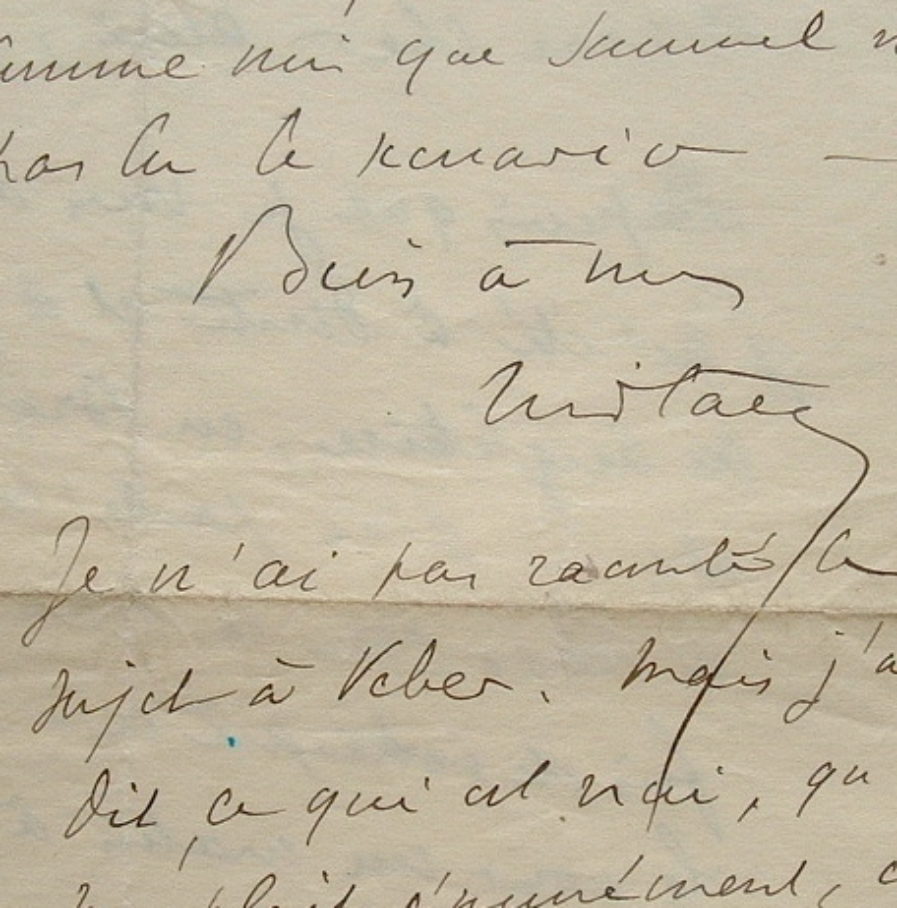 comme moi que Samuel n
pas lu le scénario —
Bien à vous
Je n'ai pas raconté le
sujet à Veber. Mais j'a
dit, ce qui est vrai, qu
plait énormément,